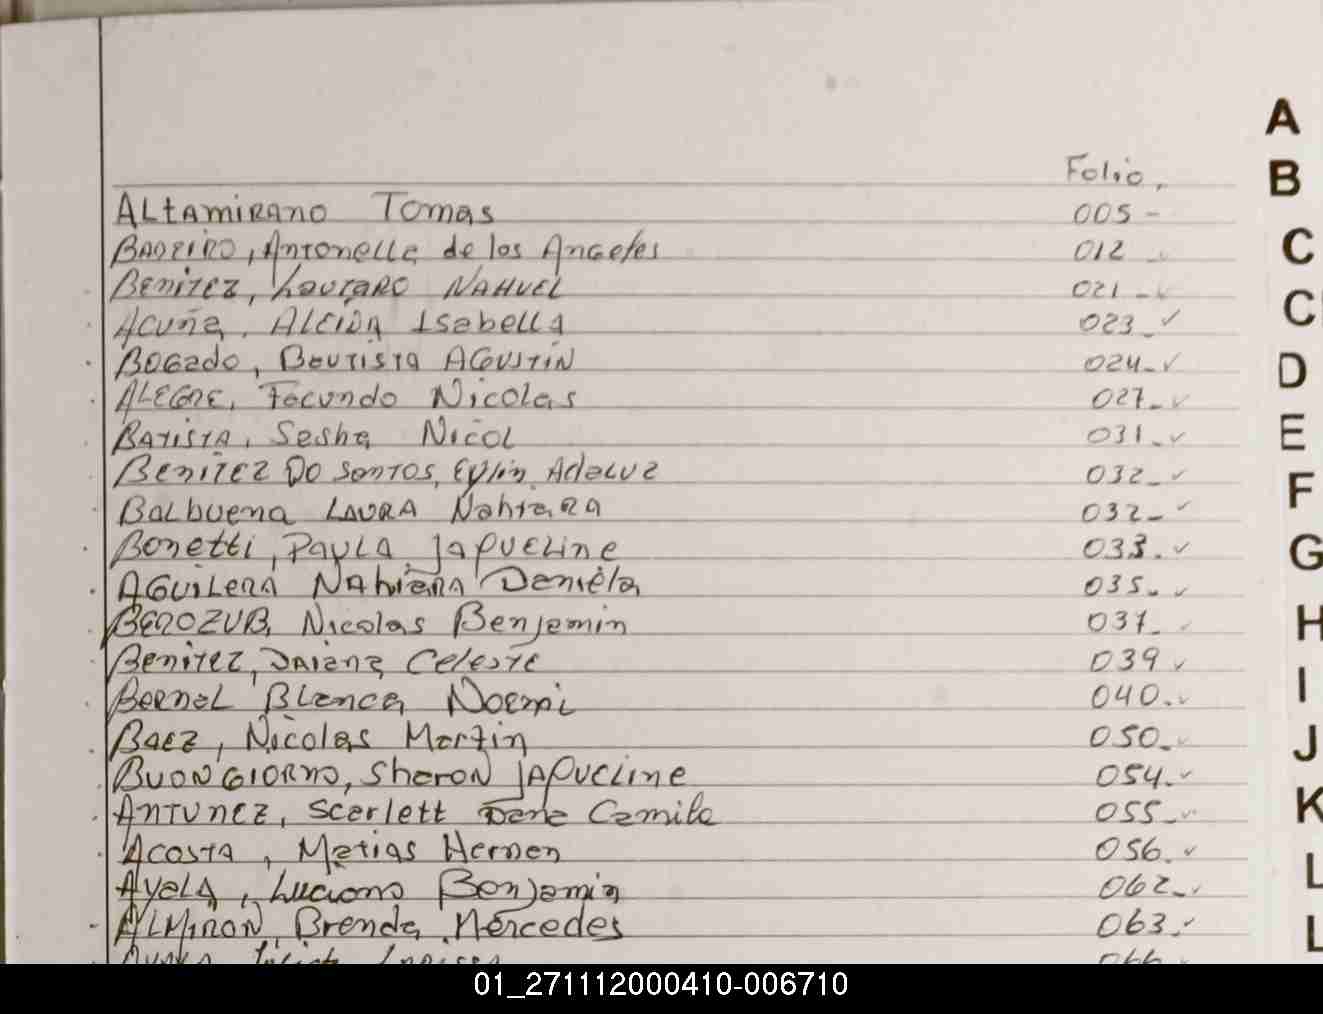 A
Folio.
B
Altamirano Tomas 005 -
Badeiro, Antonella de los Angeles 012
C
Benitez, Lautaro Nahuel 021 - ✓
Acuña, Aleida Isabella 023 - ✓
C
Bogado, Bautista Agustin 024 - ✓
D
Alegre, Facundo Nicolas 027 - ✓
Batista, Sasha Nicol 031 - ✓
E
Benitez Do Santos, Eylin Adaluz 032 - ✓
Balbuena Laura Nahiara 032 - ✓
F
Bonetti, Paula Jaqueline 033. ✓
G
Aguilera Nahiara Daniela 035. ✓
, Nicolas Benjamin 037.
H
Benitez, Daiana Celeste 039 ✓
Bernal Blanca Noemi 040. ✓
I
Baez, Nicolas Martin 050. ✓
J
Buongiorno, Sharon Jaqueline 054. ✓
Antunez, Scarlett Camila 055 - ✓
K
Acosta, Matias Hernan 056. ✓
L
Ayala, Luciano Benjamin 062 - ✓
Almiron, Brenda Mercedes 063. ✓
L
066
01_271112000410-006710